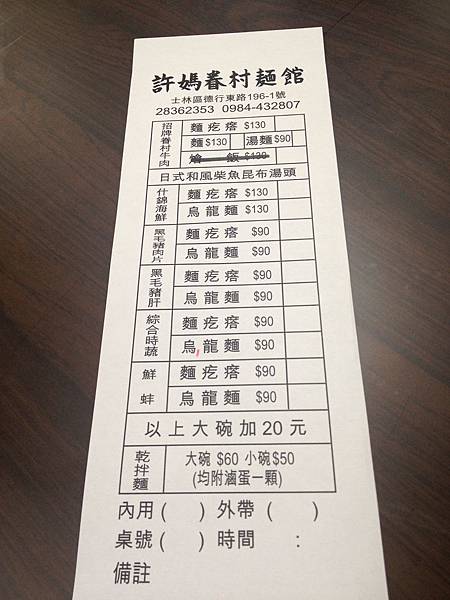 許媽眷村麵館
士林區德行東路196-1號
28362353 0984-432807
招牌眷村牛肉
麵疙瘩 $130
麵$130 湯麵$90
燴飯 $130
日式和風柴魚昆布湯頭
什錦海鮮
麵疙瘩 $130
烏龍麵 $130
黑毛豬肉片
麵疙瘩 $90
烏龍麵 $90
黑毛豬肝
麵疙瘩 $90
烏龍麵 $90
綜合時蔬
麵疙瘩 $90
烏龍麵 $90
鮮蚌
麵疙瘩 $90
烏龍麵 $90
以上大碗加20元
乾拌麵
大碗 $60 小碗$50
(均附滷蛋一顆)
內用( ) 外帶( )
桌號( ) 時間 :
備註